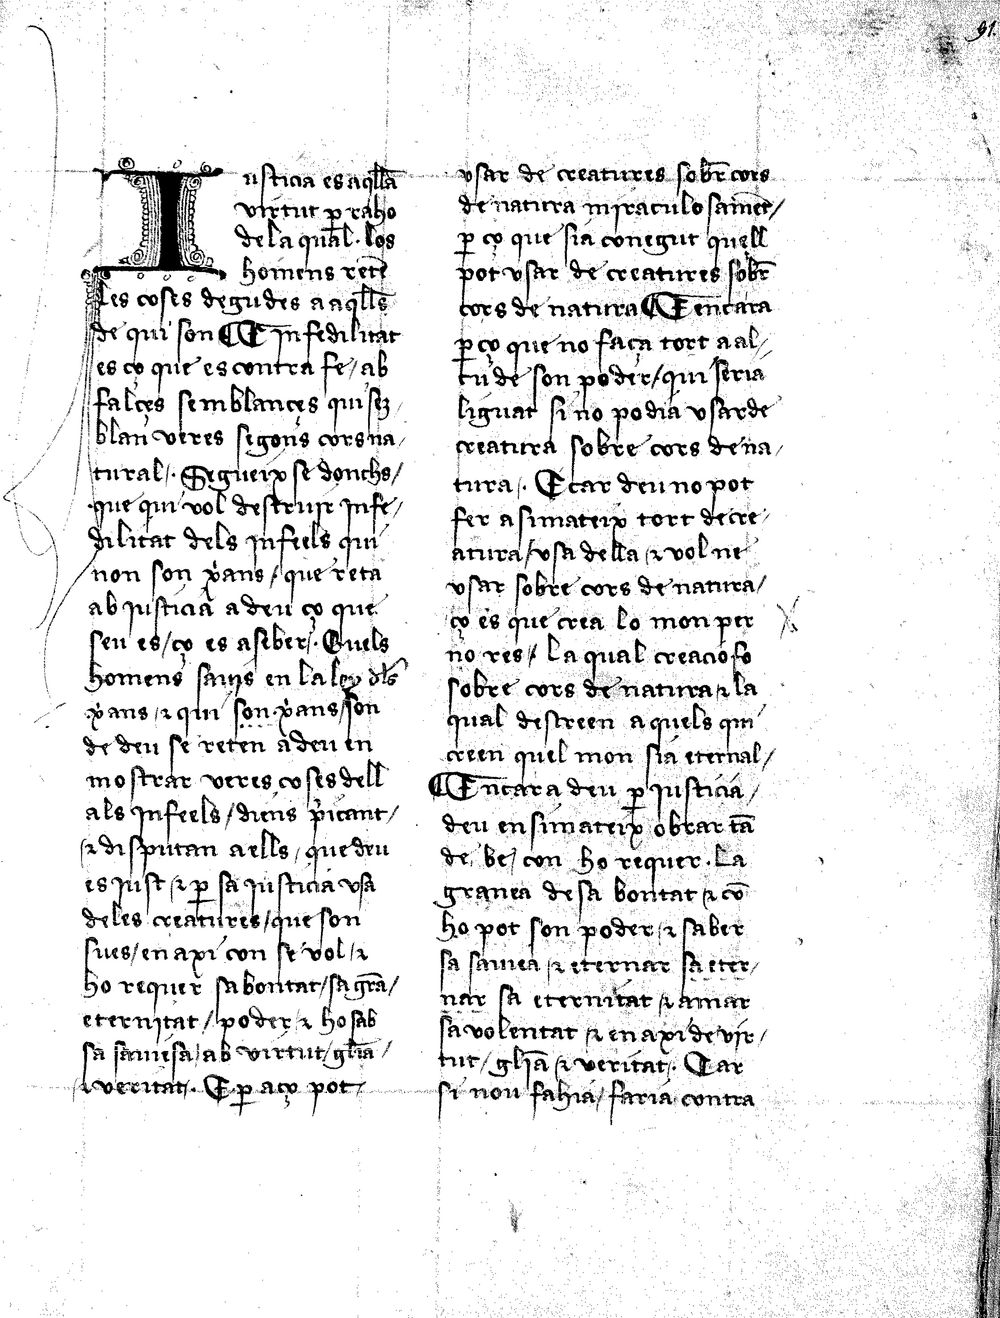 91.
Iusticia es aq̄lla
virtut ꝑ raho
de la qual · los
homens retē
les coses degudes a aq̄lls
de qui son ⁌ E Infedilitat
es ço que es contra fe / ab
falçes semblançes qui sez /
blan veres segons cors na /
tural /· Segueix se donchs /
que qui vol destruir Infe /
dilitat dels Infeels qui
non son xp̄ans / que reta
ab Justicia a deu ço que
seu es / ço es a seber /· Quels
homens sauis en la ley dls
xp̄ans / ⁊ qui son xp̄ans / son
de deu se reten a deu en
mostrar veres coses dell
als Infeels / diens p̄icant /
⁊ disputan a ells / que deu
es Just / ⁊ ꝑ sa Justicia vsa
de les creatures / que son
sues / en axi con se vol / ⁊
ho requer sa bontat / sa grā /
eternitat / poder / ⁊ ho sab
sa sauiesa / ab virtut / gl̄ia /
⁊ veritat /· E ꝑ aço pot /
vsar de creatures sobr̄ cors
de natura miraculosamēt /
ꝑ ço que sia conegut quell
pot vsar de creatures sobr̄
cors de natura ⁌ E encara
ꝑ ço que no faça tort a al /
tu de son poder / qui seria
liguat si no podia vsar de
creatura sobre cors de na /
tura /· E car deu no pot
fer a simateix tort de cre /
atura / vsa della / ⁊ vol ne
vsar sobre cors de natura /
ço es que crea lo mon per
no res / La qual creacio fo
sobre cors de natura / ⁊ la
qual descreen aquels qui
creen quel mon sia eternal /
⁌ Encara deu ꝑ Justicia /
deu en simateix obrar tā
de be / con ho requer · La
granea de sa bontat / ⁊ cō
ho pot son poder / ⁊ saber
sa sauiea / ⁊ eternar sa eter /
nar sa eternitat / ⁊ amar
sa volentat / ⁊ en axi de vir /
tut / gl̄ia / ⁊ veritat /· Car
si nou fahia / faria contra